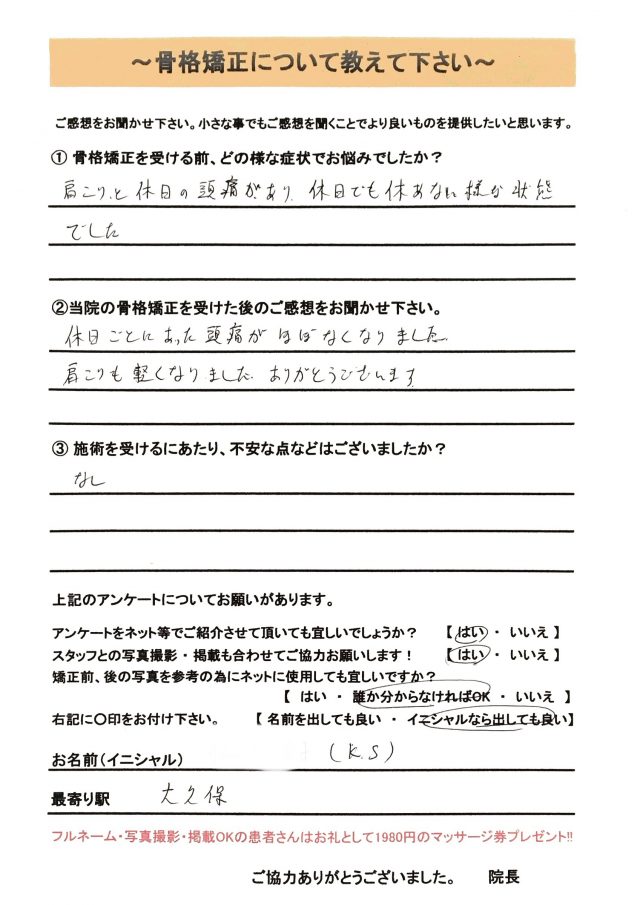 ～骨格矯正について教えて下さい～
ご感想をお聞かせ下さい。小さな事でもご感想を聞くことでより良いものを提供したいと思います。
① 骨格矯正を受ける前、どの様な症状でお悩みでしたか？
肩こりと休日の頭痛があり、休日でも休めない様な状態
でした
②当院の骨格矯正を受けた後のご感想をお聞かせ下さい。
休日ごとにあった頭痛がほぼなくなりました。
肩こりも軽くなりました。ありがとうございます。
③ 施術を受けるにあたり、不安な点などはございましたか？
なし
上記のアンケートについてお願いがあります。
アンケートをネット等でご紹介させて頂いても宜しいでしょうか？ 【 はい ・ いいえ 】
スタッフとの写真撮影・掲載も合わせてご協力お願いします！ 【 はい ・ いいえ 】
矯正前、後の写真を参考の為にネットに使用しても宜しいですか？
【 はい ・ 誰か分からなければOK ・ いいえ 】
右記に〇印をお付け下さい。 【 名前を出しても良い ・ イニシャルなら出しても良い】
お名前（イニシャル） (K.S)
最寄り駅 大久保
フルネーム・写真撮影・掲載OKの患者さんはお礼として1980円のマッサージ券プレゼント!!
ご協力ありがとうございました。 院長